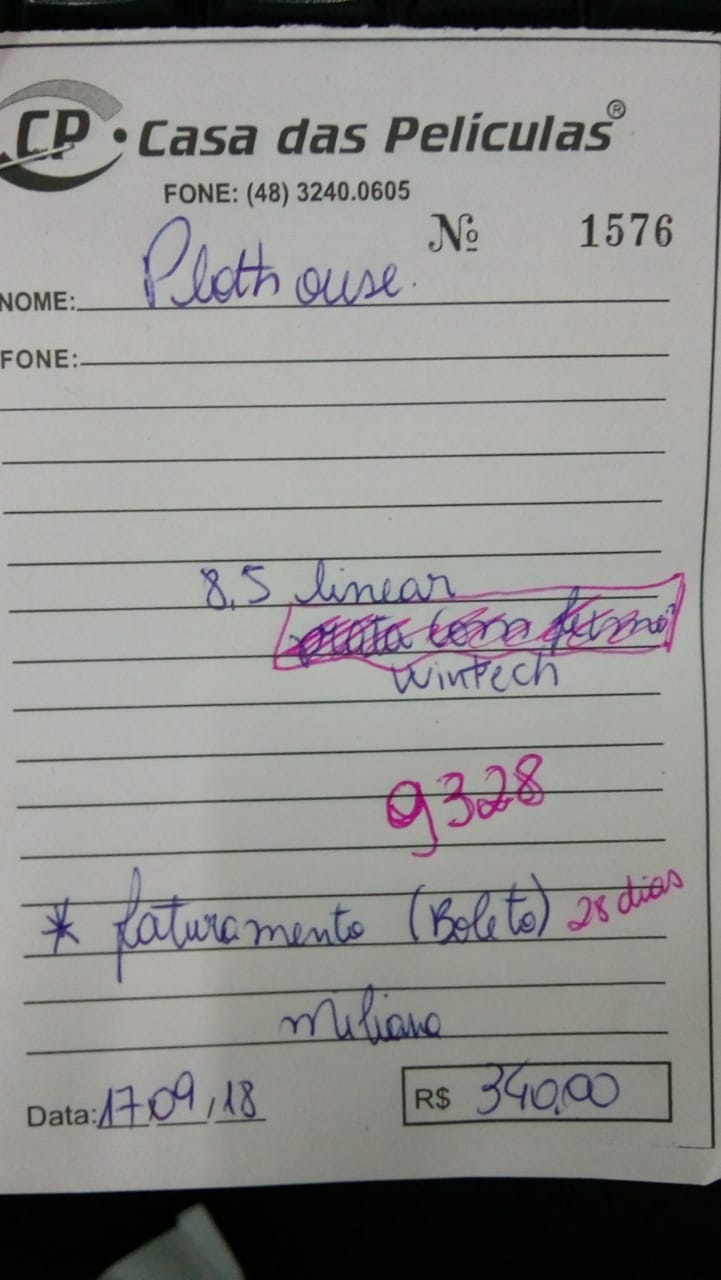 CP • Casa das Películas®
FONE: (48) 3240.0605
Nº 1576
NOME: Plothouse.
FONE:
8,5 linear
Wintech
9328
* faturamento (Boleto) 28 dias
Miliana
Data: 17,09,18
R$ 340,00